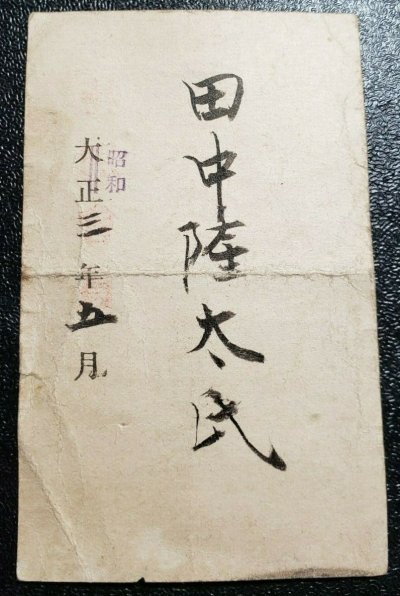 田中陸太氏
昭和
大正三年五月